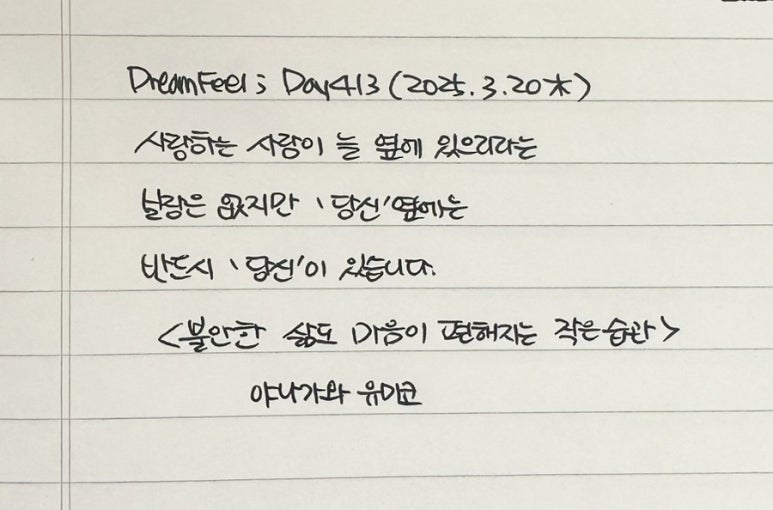 DreamFeel; Day413 (2025.3.20木)
사랑하는 사람이 늘 옆에 있으리라는
보장은 없지만 '당신'옆에는
반드시 '당신'이 있습니다.
<불안한 삶도 마음이 편해지는 작은 습관>
야나가와 유미코